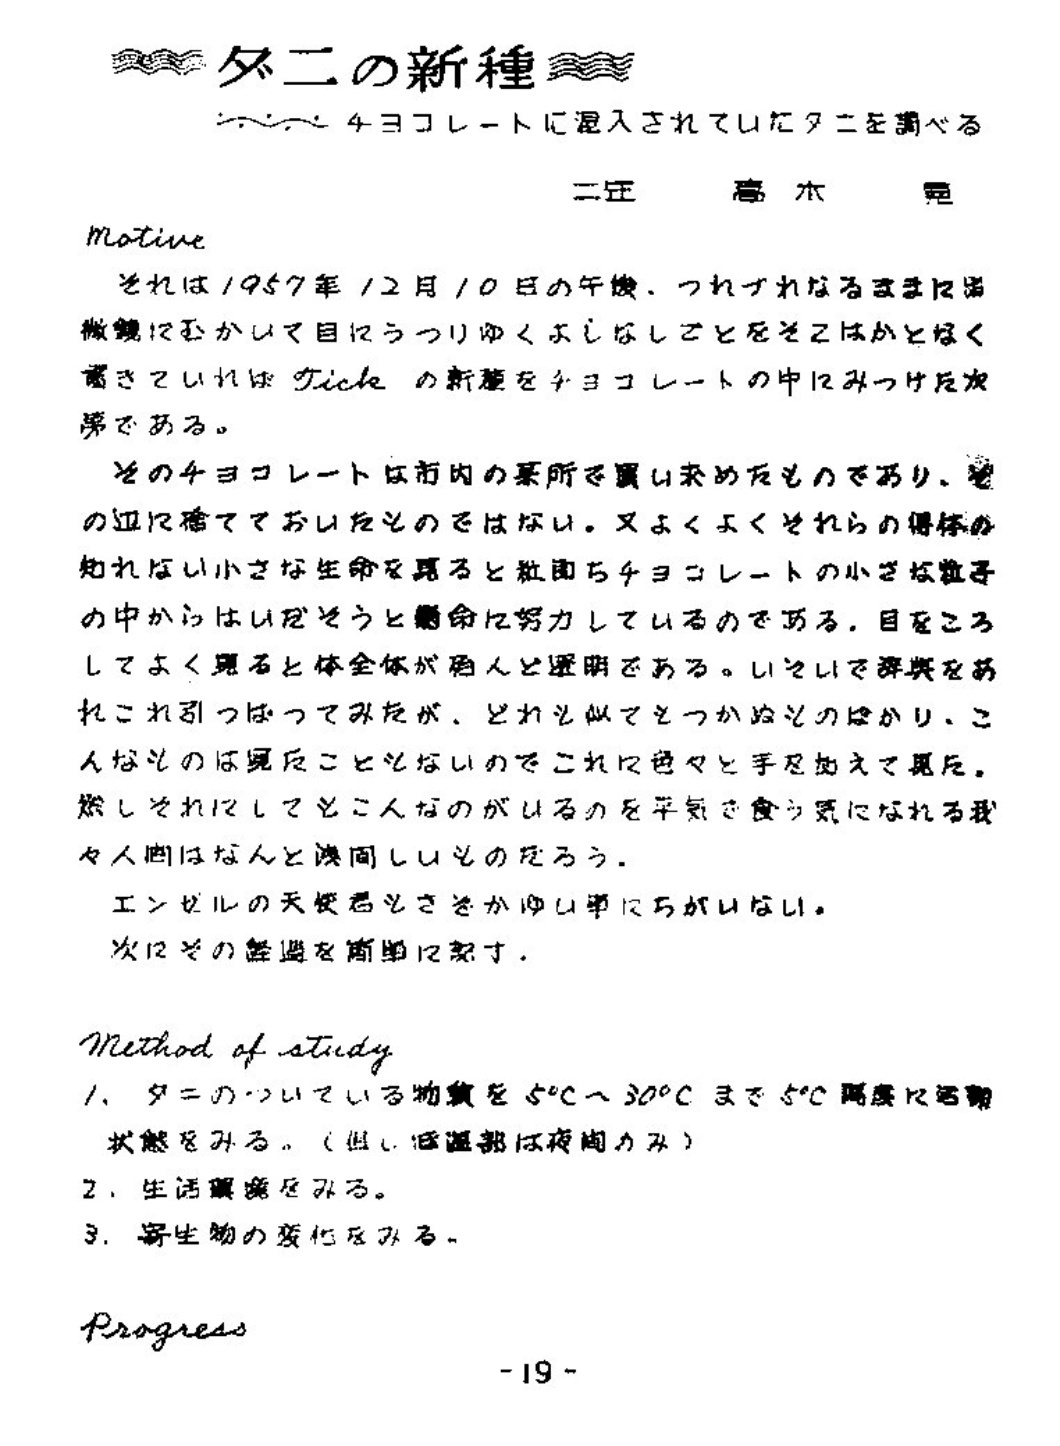 ダニの新種
チヨコレートに混入されていたダニを調べる
二年 高木 晃
Motive
それは1957年12月10日の午後、つれづれなるままに顕
微鏡にむかいて目にうつりゆくよしなしごとをそこはかとなく
書きていれば Tick の新種をチヨコレートの中にみつけた次
第である。
そのチヨコレートは市内の某所で買い求めたものであり、そ
の辺に捨てておいたものではない。又よくよくそれらの得体の
知れない小さな生命を見ると粒即ちチヨコレートの小さな粒子
の中からはいだそうと懸命に努力しているのである。目をころ
してよく見ると体全体が殆んど透明である。いそいで辞典をあ
れこれ引つばってみたが、どれも似てもつかぬものばかり、こ
んなものは見たこともないのでこれに色々と手を加えて見た。
然しそれにしてもこんなのがいるのを平気で食う気になれる我
々人間はなんと浅間しいものだろう。
エンゼルの天使君もさぞかゆい事にちがいない。
次にその経過を簡単に記す。
Method of study
1. ダニのついている物質を5°C～30°Cまで5°C間度に活動
状態をみる。(但し低温部は夜間カみ)
2. 生活環境をみる。
3. 寄生物の変化をみる。
Progress
-19-